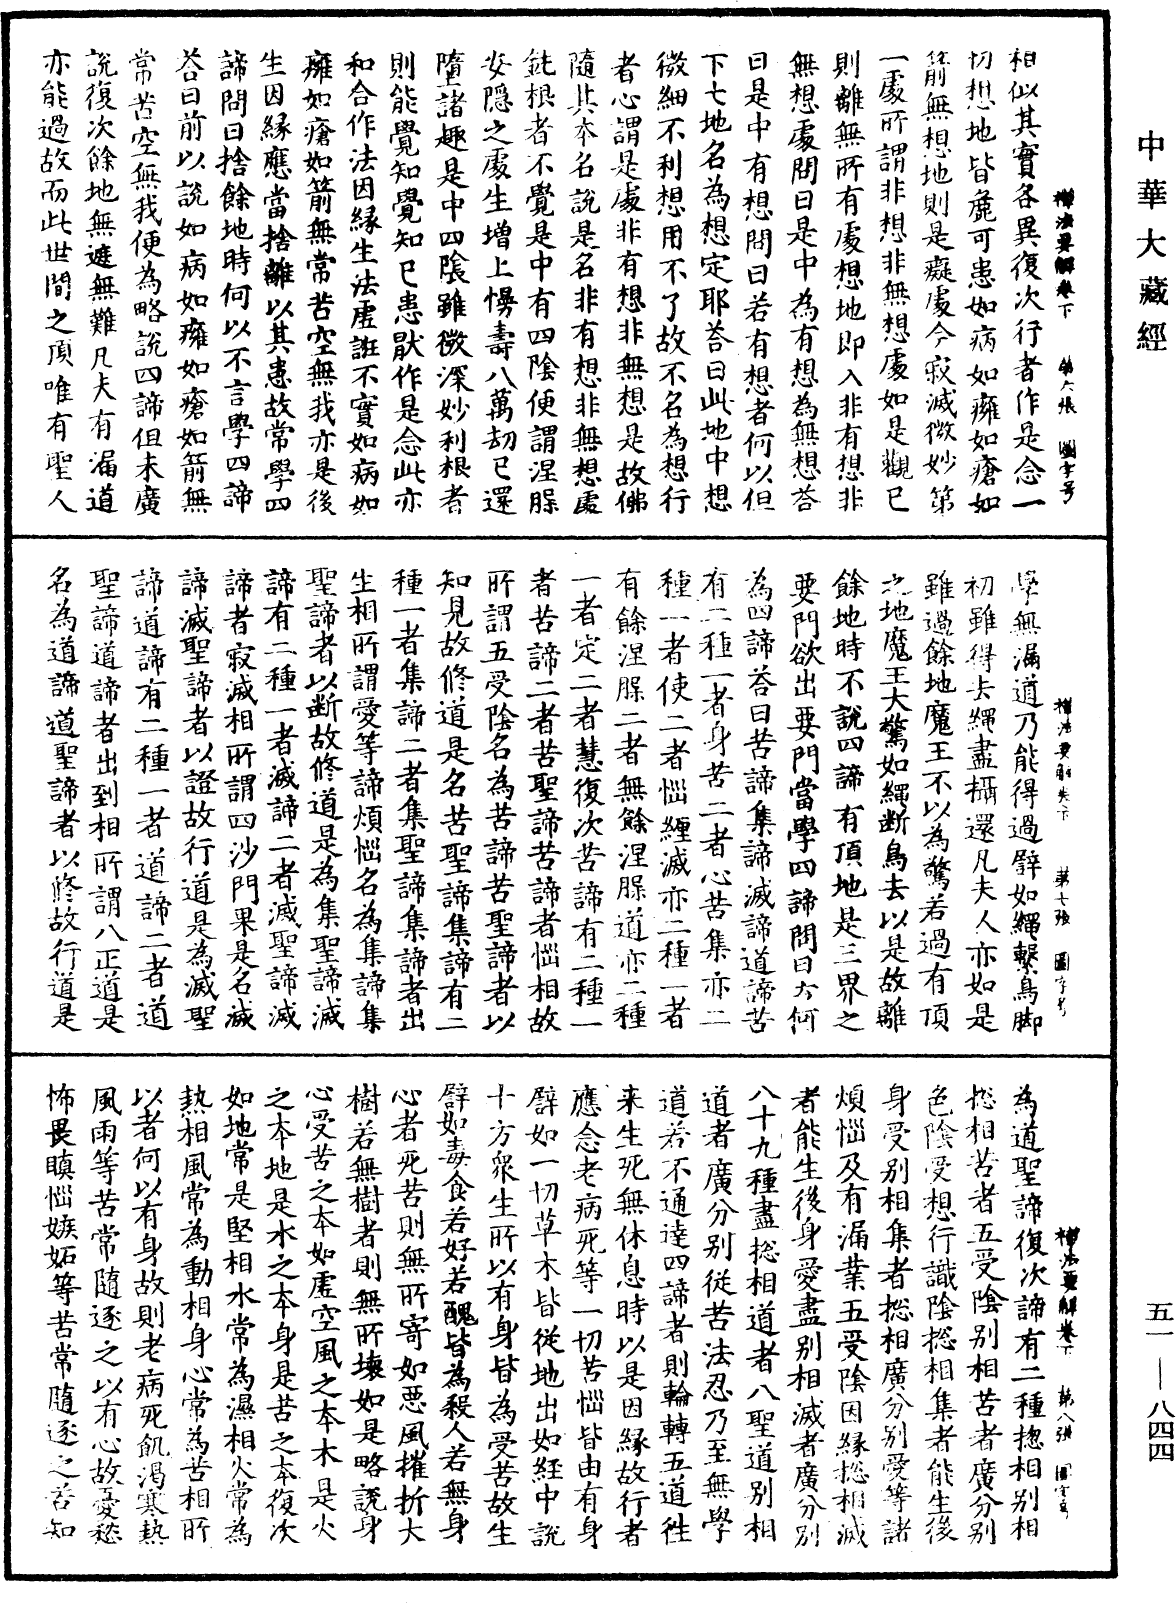 中華大藏經
禪法要解卷下　第六張　圖字号
相似其實各異復次行者作是念一
切想地皆麁可患如病如癰如瘡如
箭無想地則是癡處今寂滅微妙第
一處所謂非想非無想處如是觀已
則離無所有處想地即入非有想非
無想處問曰是中為有想為無想荅
曰是中有想問曰若有想者何以但
下七地名為想定耶荅曰此地中想
微細不利想用不了故不名為想行
者心謂是處非有想非無想是故佛
隨其本名說是名非有想非無想處
鈍根者不覺是中有四陰便謂涅槃
安隱之處生增上慢壽八萬劫已還
墮諸趣是中四陰雖微深妙利根者
則能覺知覺知已患猒作是念此亦
和合作法因緣生法虛誑不實如病如
癰如瘡如箭無常苦空無我亦是後
生因緣應當捨離以其患故常學四
諦問曰捨餘地時何以不言學四諦
荅曰前以說如病如癰如瘡如箭無
常苦空無我便為略說四諦但未廣
說復次餘地無遮無難凡夫有漏道
亦能過故而此世間之頂唯有聖人
禪法要解卷下　第七張　圖字号
學無漏道乃能得過譬如繩繫鳥脚
初雖得去繩盡攝還凡夫人亦如是
雖過餘地魔王不以為驚若過有頂
之地魔王大驚如繩斷鳥去以是故離
餘地時不說四諦有頂地是三界之
要門欲出要門當學四諦問曰云何
為四諦荅曰苦諦集諦滅諦道諦苦
有二種一者身苦二者心苦集亦二
種一者使二者惱纏滅亦二種一者
有餘涅槃二者無餘涅槃道亦二種
一者定二者慧復次苦諦有二種一
者苦諦二者苦聖諦苦諦者惱相故
所謂五受陰名為苦諦苦聖諦者以
知見故修道是名苦聖諦集諦有二
種一者集諦二者集聖諦集諦者出
生相所謂愛等諸煩惱名為集諦集
聖諦者以斷故修道是為集聖諦滅
諦有二種一者滅諦二者滅聖諦滅
諦者寂滅相所謂四沙門果是名滅
諦滅聖諦者以證故行道是為滅聖
諦道諦有二種一者道諦二者道
聖諦道諦者出到相所謂八正道是
名為道諦道聖諦者以修故行道是
禪法要解卷下　第八張　圖字号
為道聖諦復次諦有二種揔相別相
揔相苦者五受陰別相苦者廣分別
色陰受想行識陰揔相集者能生後
身受別相集者揔相廣分別愛等諸
煩惱及有漏業五受陰因緣揔相滅
者能生後身愛盡別相滅者廣分別
八十九種盡揔相道者八聖道別相
道者廣分別從苦法忍乃至無學
道若不通達四諦者則輪轉五道往
来生死無休息時以是因緣故行者
應念老病死等一切苦惱皆由有身
譬如一切草木皆從地出如經中說
十方衆生所以有身皆為受苦故生
譬如毒食若好若醜皆為殺人若無身
心者死苦則無所寄如惡風摧折大
樹若無樹者則無所壞如是略說身
心受苦之本如虛空風之本木是火
之本地是水之本身是苦之本復次
如地常是堅相水常為濕相火常為
熱相風常為動相身心常為苦相所
以者何以有身故則老病死飢渴寒熱
風雨等苦常隨逐之以有心故憂愁
怖畏瞋惱嫉妬等苦常隨逐之若知
五一—八四四